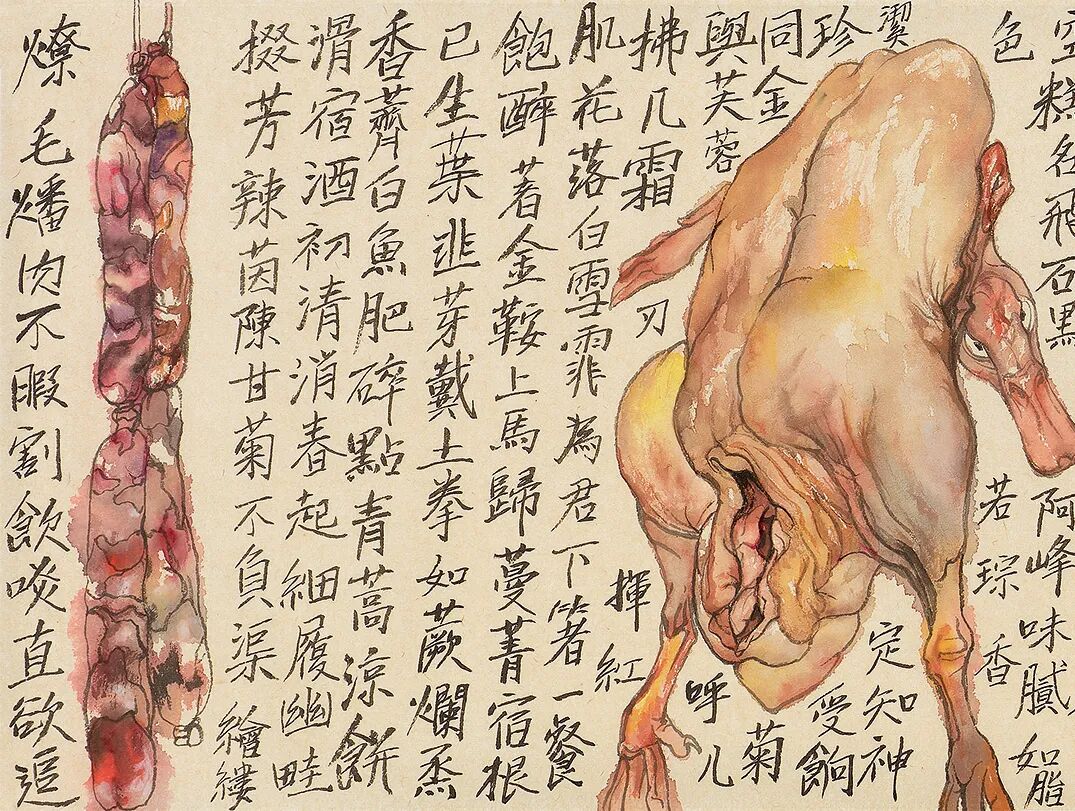 糕名飛石黑阿峰味膩如脂
色若琮香
潔定知神
珍受餉
同金菊
與芙蓉呼儿
拂几霜刃揮紅
肌花落白雪霏為君下箸一餐
飽醉著金鞍上馬歸蔓菁宿根
已生葉韭芽戴土拳如蕨爛烝
香薺白魚肥碎點青蒿涼餅
滑宿酒初清消春起細履幽畦
掇芳辣茵陳甘菊不負渠繪縷
燎毛燔肉不暇割飲啖直欲追